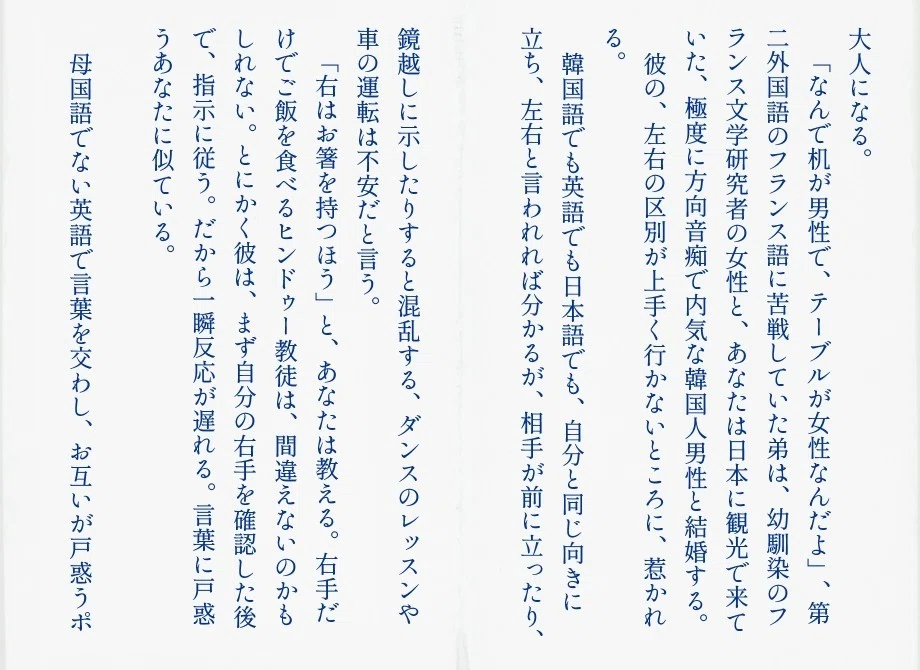 大人になる。
「なんで机が男性で、テーブルが女性なんだよ」、第
二外国語のフランス語に苦戦していた弟は、幼馴染のフ
ランス文学研究者の女性と、あなたは日本に観光で来て
いた、極度に方向音痴で内気な韓国人男性と結婚する。
彼の、左右の区別が上手く行かないところに、惹かれ
る。
韓国語でも英語でも日本語でも、自分と同じ向きに
立ち、左右と言われれば分かるが、相手が前に立ったり、
鏡越しに示したりすると混乱する、ダンスのレッスンや
車の運転は不安だと言う。
「右はお箸を持つほう」と、あなたは教える。右手だ
けでご飯を食べるヒンドゥー教徒は、間違えないのかも
しれない。とにかく彼は、まず自分の右手を確認した後
で、指示に従う。だから一瞬反応が遅れる。言葉に戸惑
うあなたに似ている。
母国語でない英語で言葉を交わし、お互いが戸惑うポ